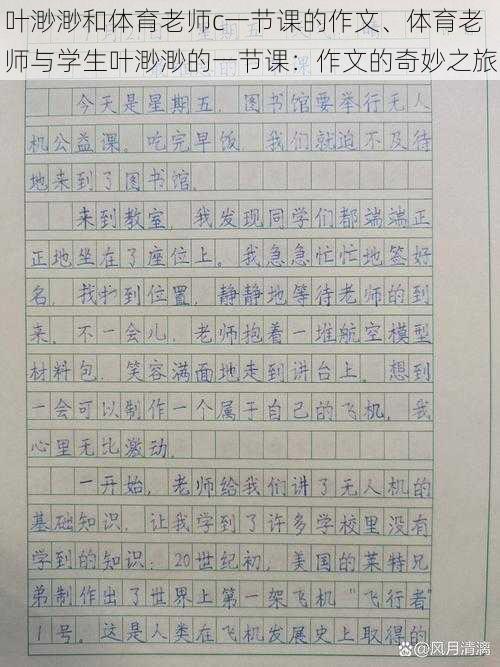 叶渺渺和体育老师c一节课的作文、体育老
师与学生叶渺渺的一节课：作文的奇妙之旅
今天是星期五，图书馆要举行无人
机公益课。吃完早饭，我们就迫不及待
地来到了图书馆。
来到教室，我发现同学们都端端正
正地坐在了座位上。我急急忙忙地签好
名，找到位置，静静地等待老师的到
来。不一会儿，老师抱着一堆航空模型
材料包，笑容满面地走到讲台上。想到
一会可以制作一个属于自己的飞机，我
心里无比激动。
一开始，老师给我们讲了无人机的
基础知识，让我学到了许多学校里没有
学到的知识：20世纪初，美国的莱特兄
弟制作出了世界上第一架飞机“飞行者”
1号。这是人类在飞机发展史上取得的
@风月清漓